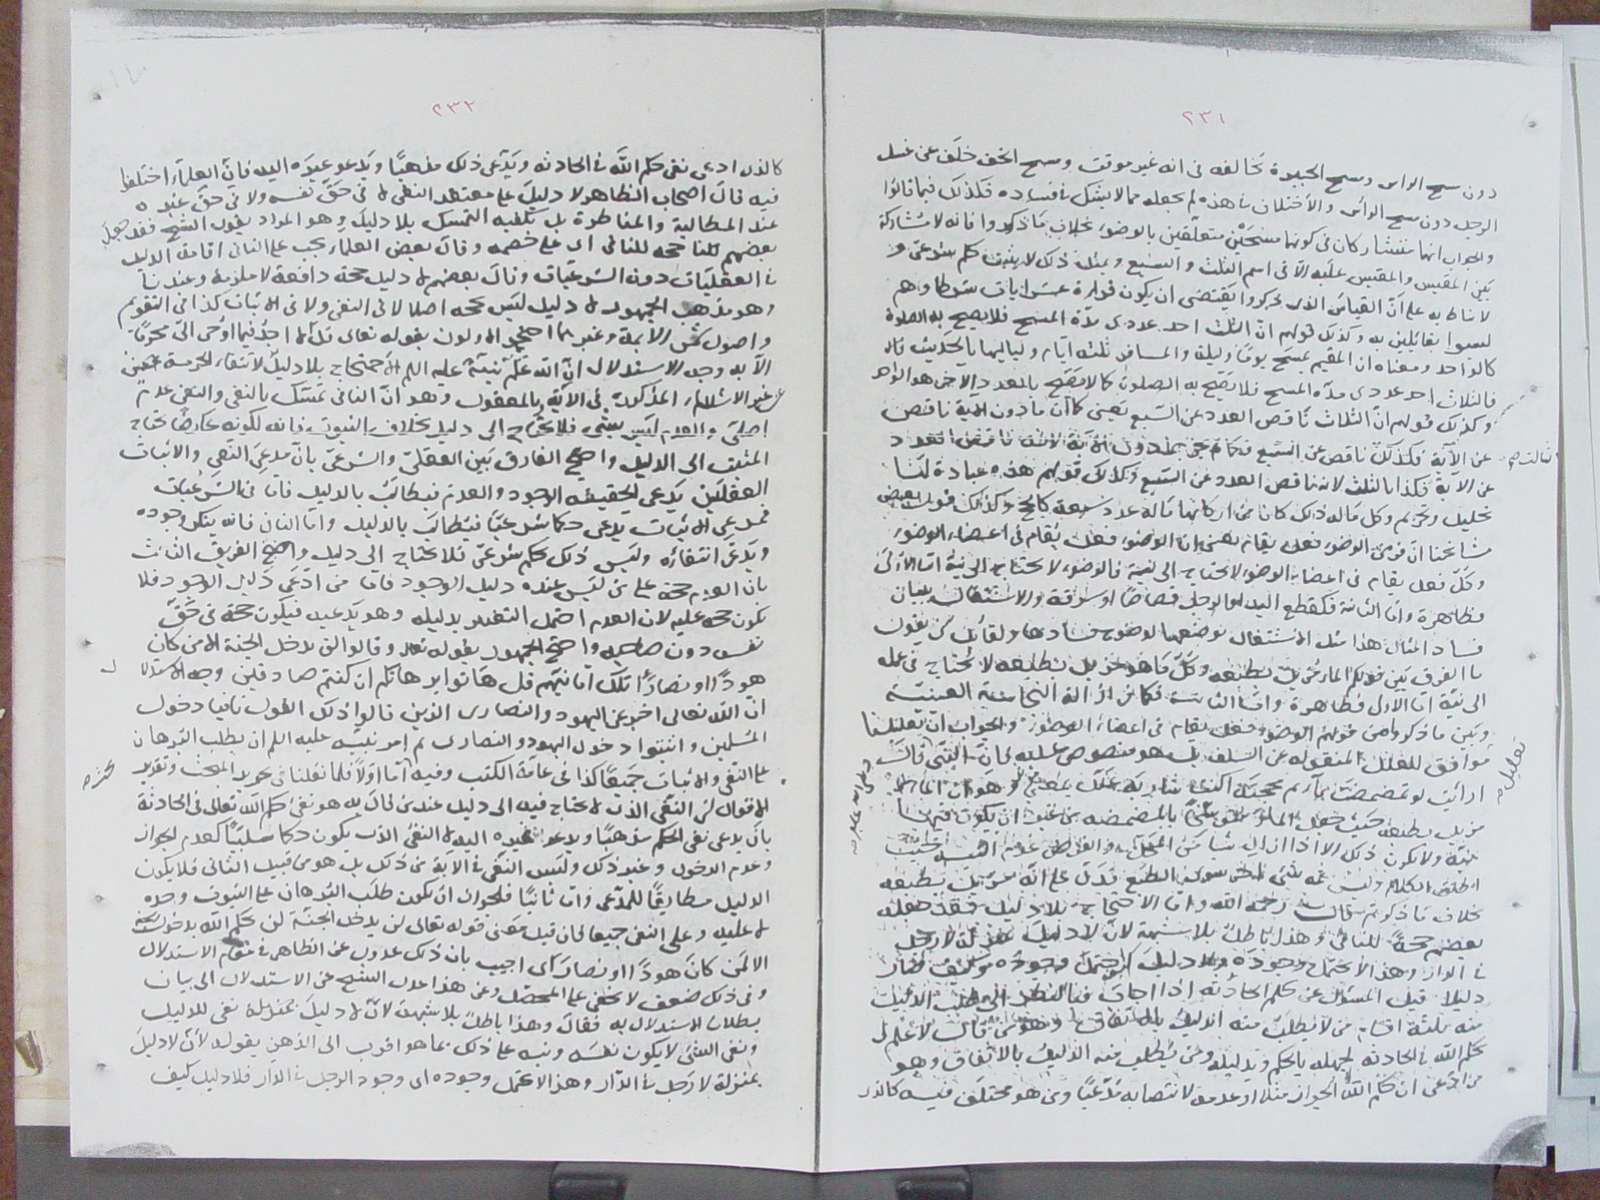 ٢٣١
دون مسح الراس ومسح الجبيرة يخالفه فى انه غير موقت ومسح الخف خلف عن غسل
الرجل دون مسح الرأس والاختلاف فى هذه لم يجعله مما لا يشك فى فساده فكذلك فيما قالوا
والجواب انهما متشاركان فى كونهما مسحين متعلقين بالوضوء بخلاف ما ذكروا فانه لا مشاركة
بين المقيس والمقيس عليه الا فى اسم الثلث والسبع ومثل ذلك لا يثبت حكم شرعى و
لا مناط به على ان القياس الذى ذكروا يقتضى ان يكون قراءة عشر ايات شرطا وهم
ليسوا بقائلين به وكذلك قولهم ان الثلث احد عددى مدة المسح فلا يصح به الصلوة
كالواحد ومعناه ان المقيم يمسح يوما وليلة والمسافر ثلثة ايام ولياليها بالحديث قالوا
فالثلاث احد عددى مدة المسح فلا يصح به الصلوة كما لا يصح بالعدد الاخر هو الواحد
وكذلك قولهم ان الثلاث ناقص العدد عن السبع يعنى كما ان ما دون الآية ناقص
عن الآية فكذلك ناقص عن السبع
عن الآية فكذا الثلث لانه ناقص العدد عن السبع وكذلك قولهم هذه عبادة لها
تحليل وتحريم وكل ما له ذلك كان من اركانها ما له عدد سبعة كالحج وكذلك قول بعض
مشايخنا ان فرض الوضوء فعل يقام يعنى ان الوضوء فعل يقام فى اعضاء الوضوء
وكل فعل يقام فى اعضاء الوضوء لا يحتاج الى نية فالوضوء لا يحتاج الى نية اما الاولى
فظاهرة واما الثانية فكقطع اليد والرجل قصاصا او سرقة والاشتغال ببيان
فساد امثال هذا مثل الاشتغال بوضعها لوضوح فسادها ولقائل ان يقول
ما الفرق بين قولكم الماء مزيل بطبعه وكل ما هو مزيل بطبعه لا يحتاج فى عمله
الى نية اما الاولى فظاهرة واما الثانية فكما فى ازالة النجاسة العينية
وبين ما ذكروا من قولهم الوضوء فعل يقام فى اعضاء الوضوء والجواب ان تعليلنا
موافق للعلل المنقوله عن السلف بل هو منصوص عليه فان النبى قال
ارايت لو تمضمضت بماء ثم مججته
مزيل بطبعه حيث جعل
نية ولا يكون ذلك الا اذا ازال شيا من المحل
اطلاق الكلام وليس ثمه شئ اخر سوى الطبع فدل على انه مزيل بطبعه
بخلاف ما ذكرتم قال رحمه الله واما الاحتجاج بلا دليل فقد جعله
بعضهم حجة للنافى وهذا باطل بلا شبهة لان لا دليل بمنزلة لا رجل
فى الدار وهذا لا يحتمل وجوده فلا دليل كيف احتمل وجوده وكيف صار
دليلا قيل المسئول عن حكم الحادثه اذا اجاب فبالنظر الى طلب الدليل
منه ثلثة اقسام من لا يطلب منه الدليل بالاتفاق وهو من قال لا اعلم
بحكم الله فى الحادثه لجهله بالحكم وبدليله ومن يطلب منه الدليل بالاتفاق وهو
من ادعى ان حكم الله الجواز مثلا او عدمه لانتصابه مدعيا ومن هو مختلف فيه كالذى
تعليل صح
٢٣٢
كالذى ادعى نفى حكم الله فى الحادثه ويدعى ذلك مذهبا ويدعو غيره اليه فان العلماء اختلفوا
فيه قال اصحاب الظاهر لا دليل على معتقد النفى لا فى حق نفسه ولا فى حق غيره
عند المطالبة والمناظرة بل يكفيه التمسك بلا دليل وهو المراد بقول الشيخ فقد جعل
بعضهم حجه للنافى اى على خصمه وقال بعض العلماء يجب على النافى اقامة الدليل
فى العقليات دون الشرعيات وقال بعضهم لا دليل حجة دافعة لا ملزمة وعندنا
وهو مذهب الجمهور لا دليل ليس بحجه اصلا لا فى النفى ولا فى الاثبات كذا فى التقويم
واصول شمس الائمة وغيرهما احتج الاولون بقوله تعالى قل لا اجد فيما اوحى الى محرما
الآية وجه الاستدلال ان الله علم نبيه عليه السلم الاحتجاج بلا دليل لانتفاء الحرمة
عن غير الاشياء المذكورة فى الآية وبالمعقول وهو ان النافى تمسك بالنفى والنفى عدم
اصلى والعدم ليس بشئ فلا يحتاج الى دليل بخلاف الثبوت فانه لكونه عارضا يحتاج
المثبت الى الدليل واحتج الفارق بين العقلى والشرعى بان مدعى النفى والاثبات
العقليين يدعى حقيقة الوجود والعدم فيطالب بالدليل فاما فى الشرعيات
فمدعى الاثبات يدعى حكما شرعيا فيطالب بالدليل واما النافى فانه ينكر وجوده
ويدعى انتفاءه وليس ذلك حكم شرعى فلا يحتاج الى دليل واحتج الفريق الثالث
بان العدم حجة على من ليس عنده دليل الوجود فاما من ادعى دليل الوجود فلا
يكون حجه عليه لان العدم احتمل التغير بدليله وهو يدعيه فيكون حجة فى حق
نفسه دون صاحبه واحتج الجمهور بقوله تعالى وقالوا لن يدخل الجنة الا من كان
هودا او نصارى تلك امانيهم قل هاتوا برهانكم ان كنتم صادقين وجه الاستدلال
ان الله تعالى اخبر عن اليهود والنصارى الذين قالوا ذلك القول نافيا دخول
المسلمين واثبتوا دخول اليهود والنصارى ثم امر نبيه عليه السلم ان يطلب البرهان
على النفى والاثبات جميعا كذا فى عامة الكتب وفيه اما اولا فلما نقلنا فى تحرير المبحث وتقرير
الاقوال ان النفى الذى لا يحتاج فيه الى دليل عند من قال به هو نفى حكم الله تعالى فى الحادثة
بان يدعى نفى الحكم مذهبا ويدعو غيره اليه لا النفى الذى يكون حكما سلبيا كعدم الجواز
وعدم الدخول وغير ذلك وليس النفى فى الآية من ذلك بل هو من قبيل الثانى فلا يكون
الدليل مطابقا للمدعى واما ثانيا فلجواز ان يكون طلب البرهان على الثبوت وحده
لا عليه وعلى النفى جميعا فان قيل معنى قوله تعالى لن يدخل الجنة لن حكم الله بدخول الجنة
الا لمن كان هودا او نصارى اجيب بان ذلك عدول عن الظاهر فى مقام الاستدلال
وفى ذلك ضعف لا يخفى على المحصل وعن هذا عدل الشيخ عن الاستدلال الى بيان
بطلان الاستدلال به فقال وهذا باطل بلا شبهة لان لا دليل بمنزلة نفى للدليل
ونفى الشئ لا يكون نفسه ونبه على ذلك بما هو اقرب الى الذهن بقوله لان لا دليل
بمنزلة لا رجل فى الدار وهذا لا يحتمل وجوده اى وجود الرجل فى الدار فلا دليل كيف